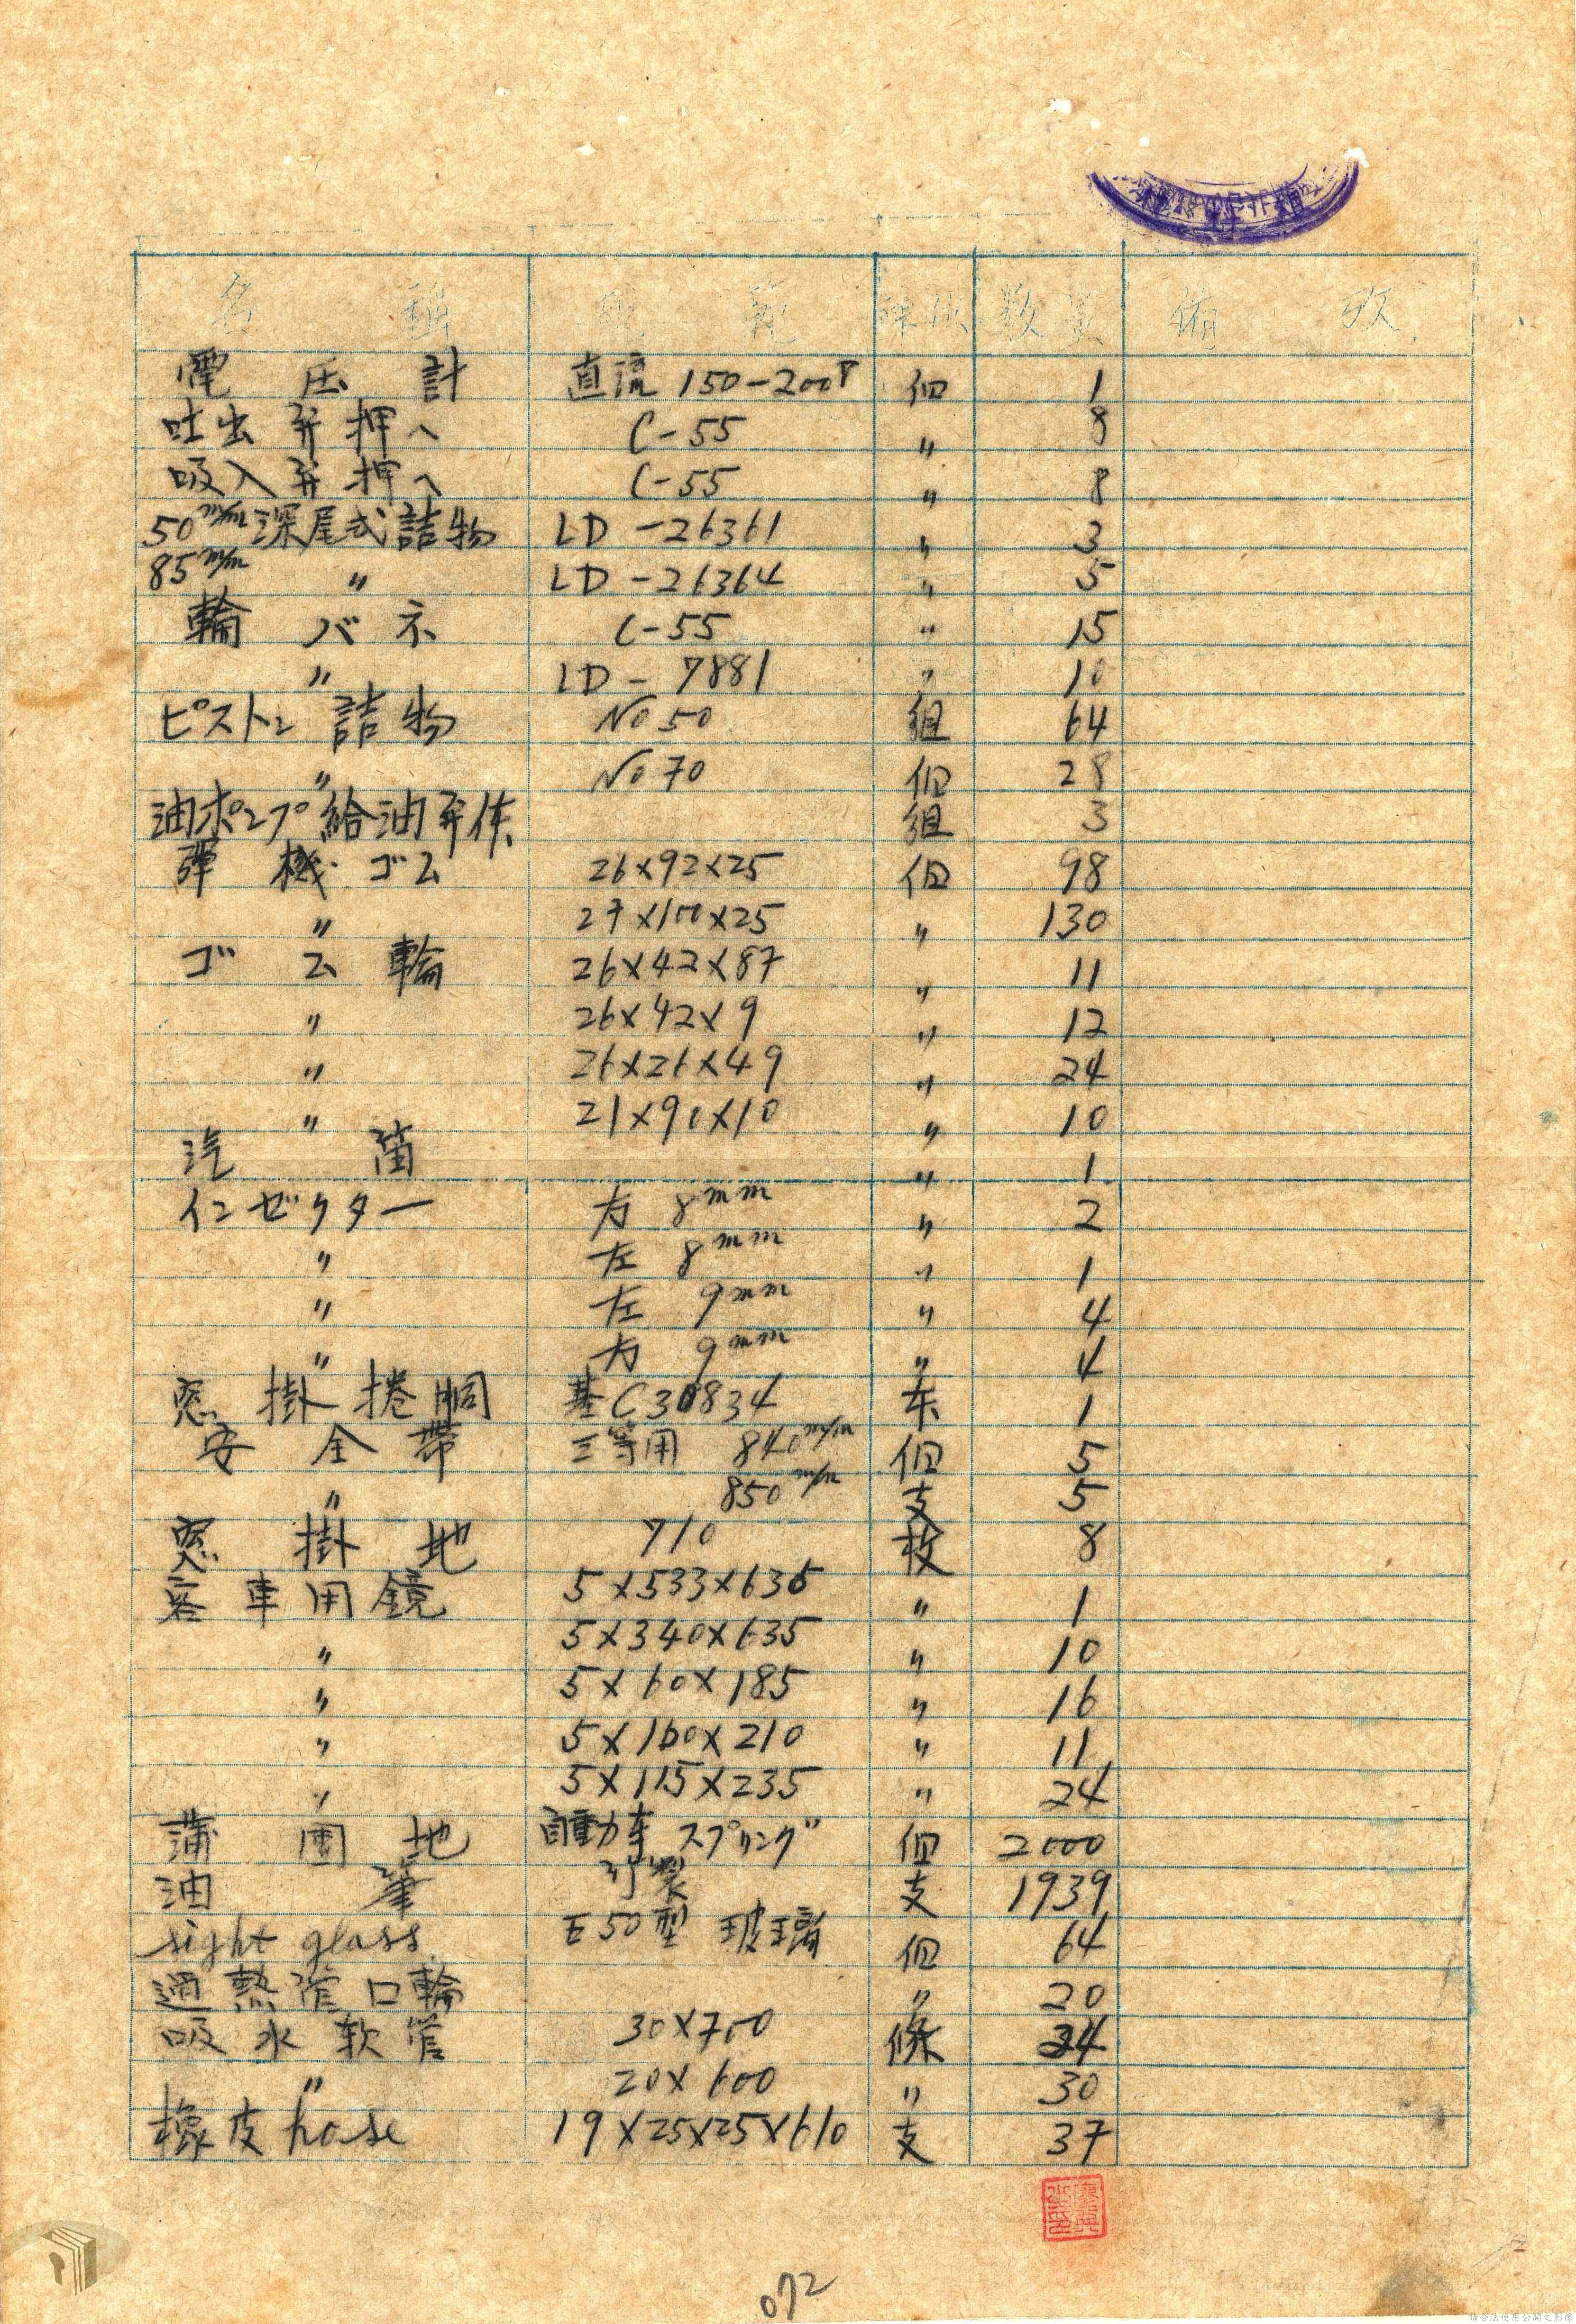 名 稱 規 範 單位 數量 備 攷
電 压 計 直流 150-200 個 1
吐出弁押へ C-55 〃 8
吸入弁押へ C-55 〃 8
50m/m深尾式詰物 LD-26361 〃 3
85m/m 〃 LD-26364 〃 5
輪 バ ネ C-55 〃 15
〃 LD-7881 〃 10
ピストン詰物 No 50 組 64
〃 No 70 個 28
油ポンプ給油弁体 組 3
彈機ゴム 26×92×25 個 98
〃 27×100×25 〃 130
ゴ ム 輪 26×42×87 〃 11
〃 26×42×9 〃 12
〃 26×26×49 〃 24
〃 21×90×10 〃 10
汽 笛 〃 1
インゼクター 右 8mm 〃 2
〃 左 8mm 〃 1
〃 左 9mm 〃 4
〃 右 9mm 〃 4
窓掛捲胴 基C30834 本 1
安 全 帶 三等用 840m/m 個 5
〃 850m/m 支 5
窓 掛 地 710 枚 8
客車用鏡 5×533×635 〃 1
〃 5×340×635 〃 10
〃 5×60×185 〃 16
〃 5×160×210 〃 11
〃 5×115×235 〃 24
蒲 団 地 自動車スプリング 個 2000
油 筆 製 支 1939
sight glass E50型 玻璃 個 64
過熱管口輪 〃 20
吸水軟管 30×700 條 34
〃 20×600 〃 30
橡皮hose 19×25×25×610 支 37
072
請合法使用公開之影像